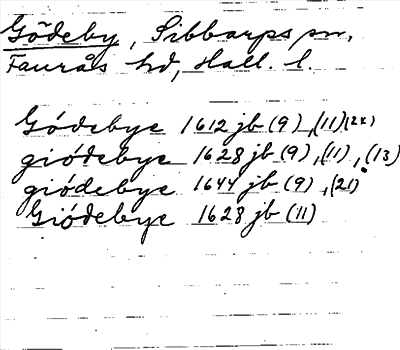 Gödeby, Sibbarps sn,
Faurås hd, Hall. l.
Gödebye 1612 jb (9), (11) (2x)
giödebye 1628 jb (9), (11), (13)
giödebye 1644 jb (9), (21)
Giödebye 1628 jb (11)